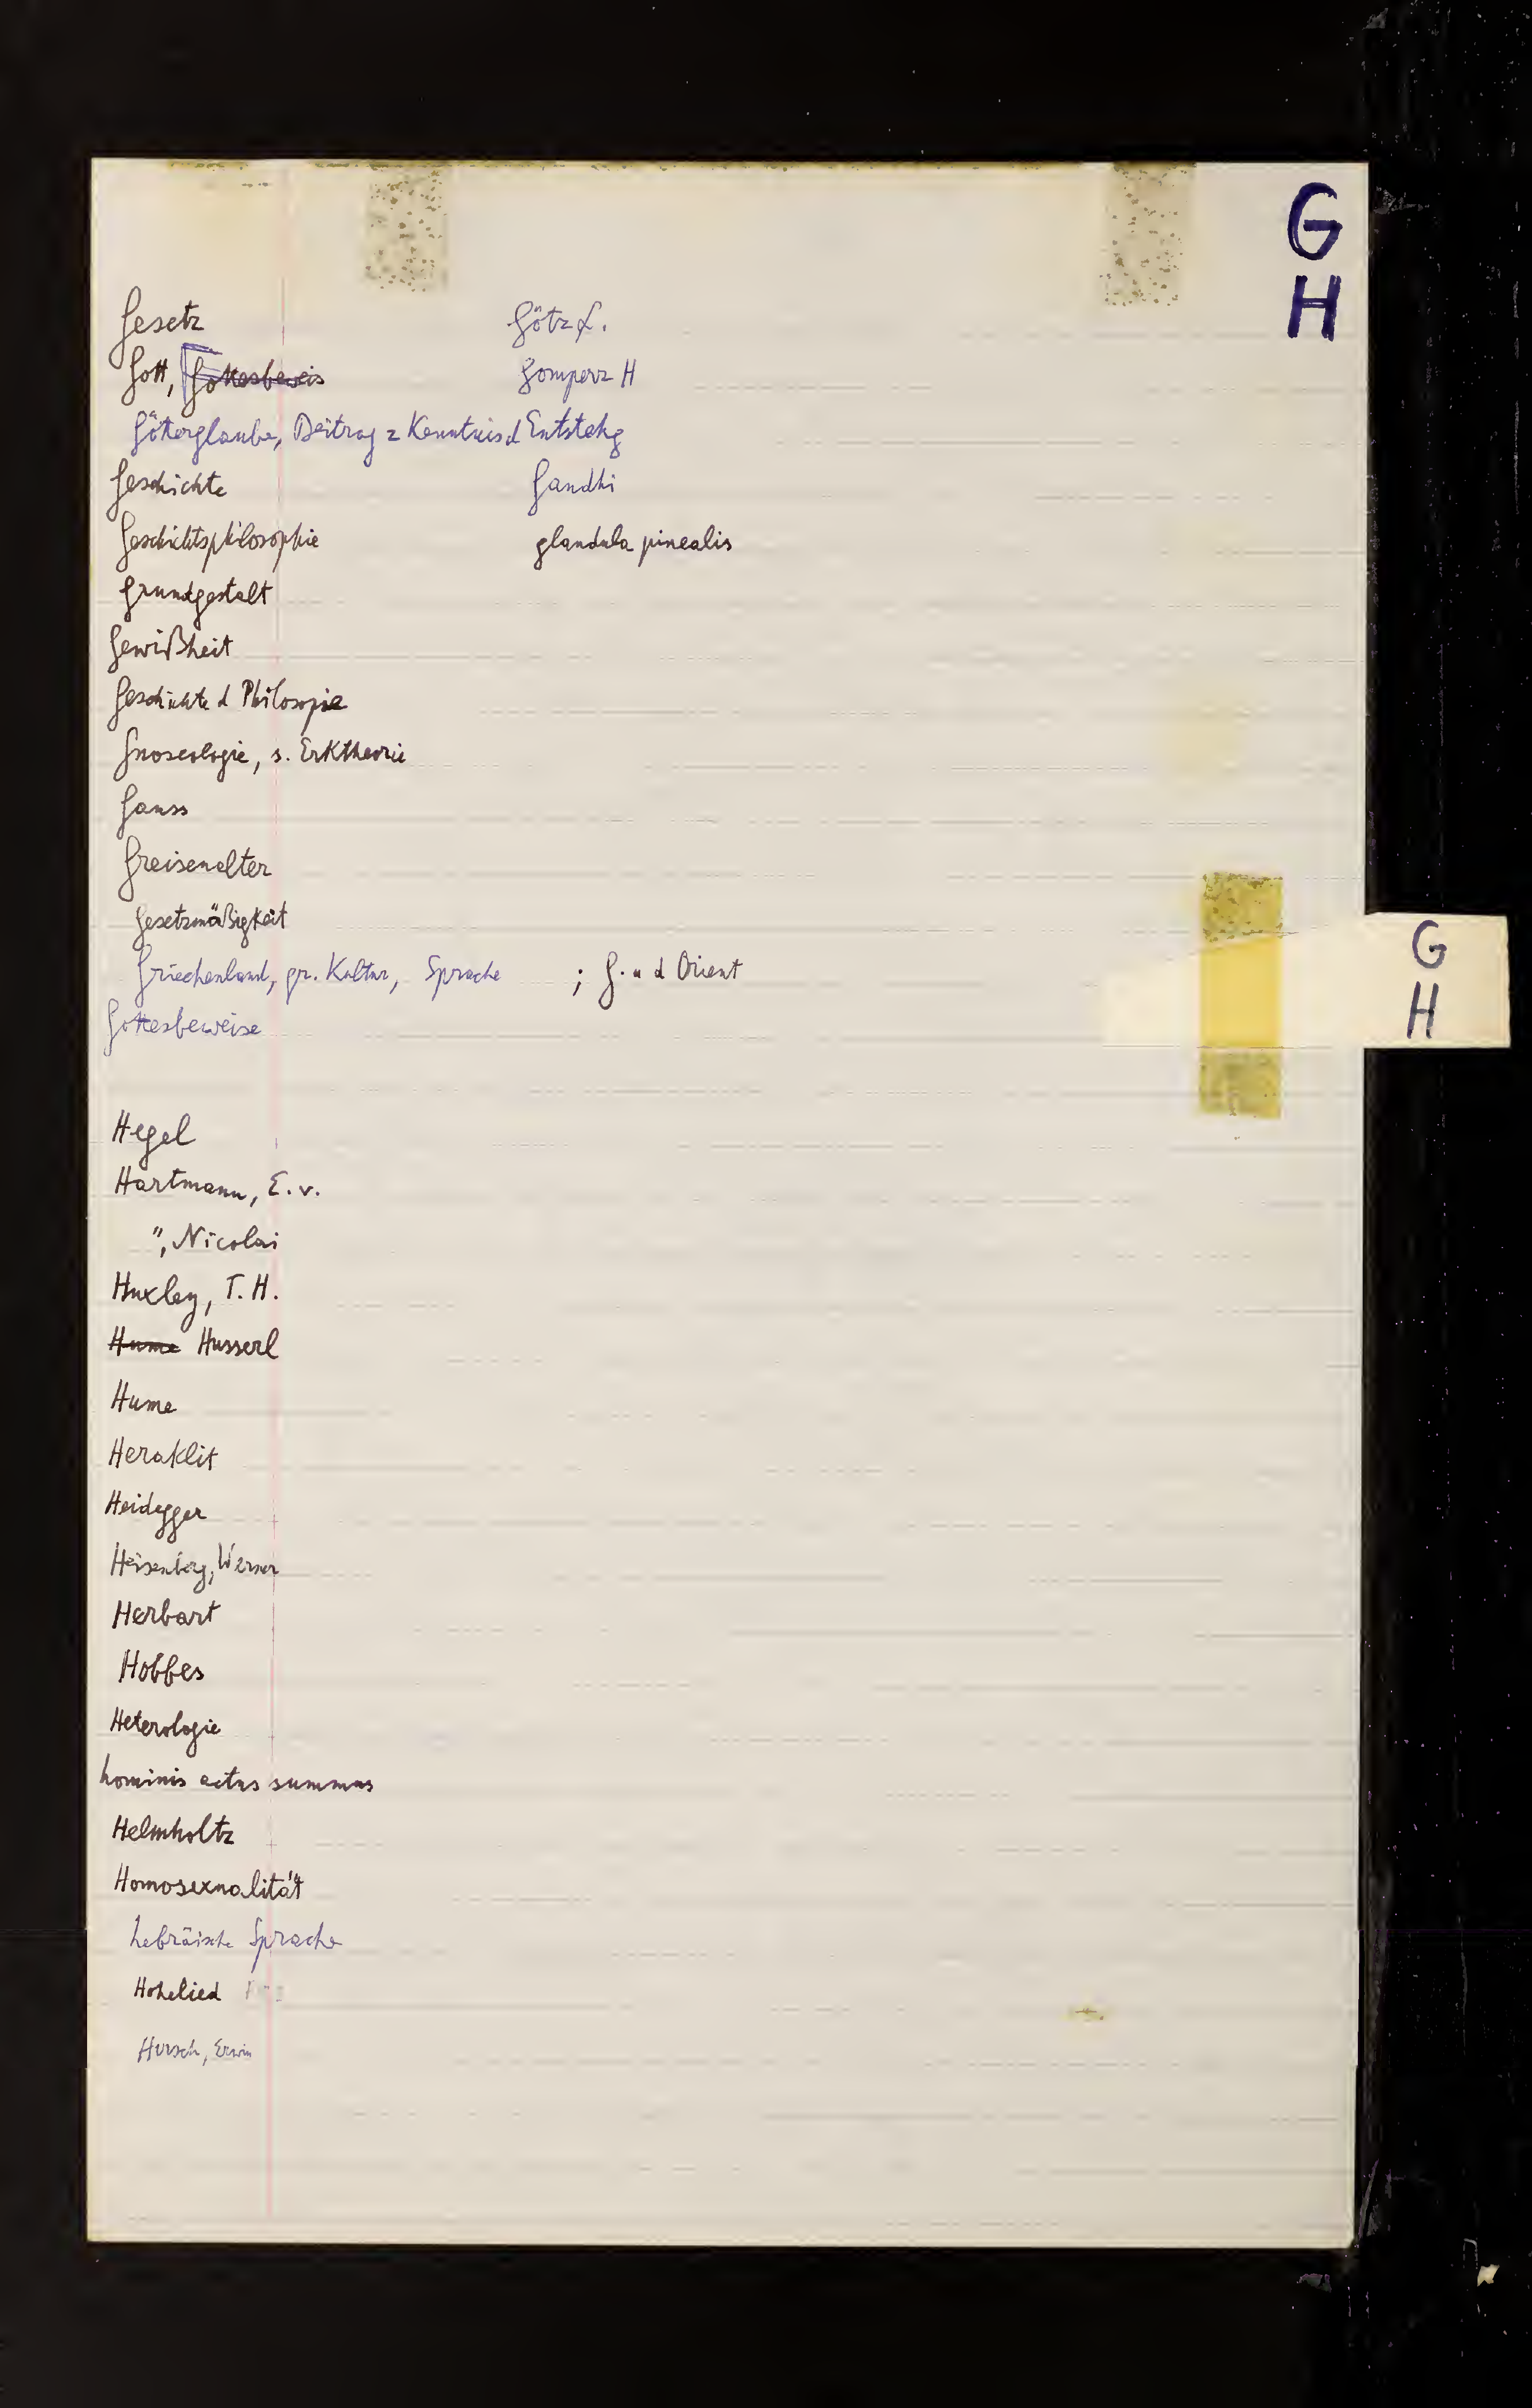 G
H
Gesetz
Götz L.
Gott, Gottesbeweis
Gomperz H
Götterglaube, Beitrag z Kenntnis d Entstehg
Geschichte
Gandhi
Geschichtsphilosophie
glandula pinealis
Grundgestalt
Gewißheit
Geschichte d Philosopie
Gnoseologie, s. ErKtheorie
Gauss
Greisenalter
Gesetzmäßigkeit
Griechenland, gr. Kultur, Sprache ; G. u d Orient
Gottesbeweise
G
H
Hegel
Hartmann, E. v.
", Nicolai
Huxley, T. H.
Hume Husserl
Hume
Heraklit
Heidegger
Heisenberg, Werner
Herbart
Hobbes
Heterologie
hominis actus summus
Helmholtz
Homosexualität
hebräische Sprache
Hohelied
Erwin